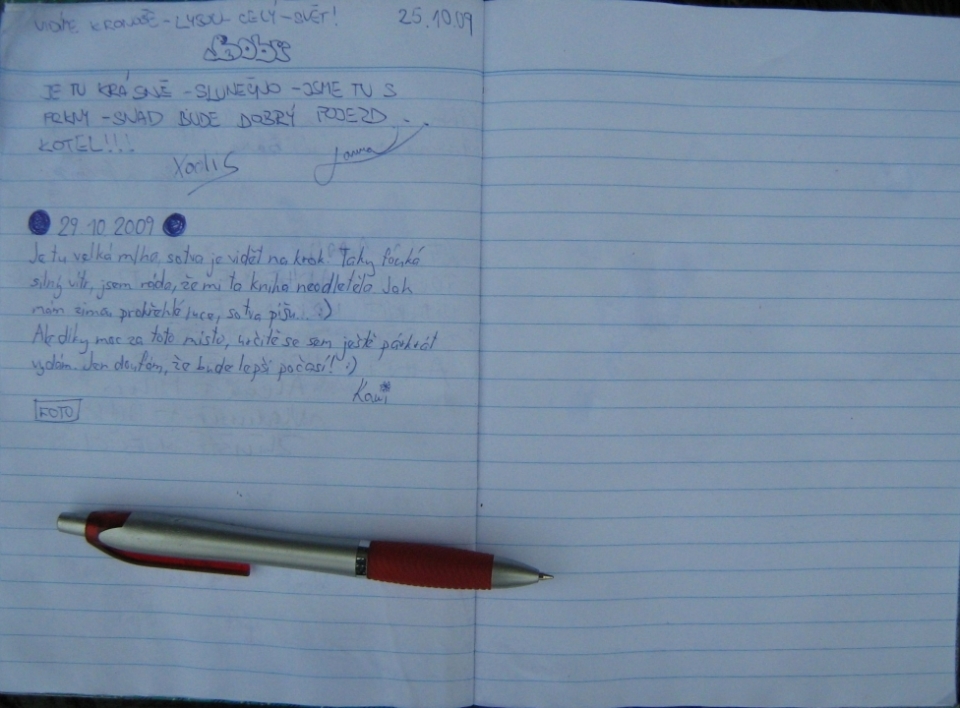 VIDÍME KRKONOŠE - LYSOU CELÝ - SVĚT! 25.10.09
BOBR
JE TU KRÁSNĚ - SLUNEČNO - JSME TU S
- SNAD BUDE DOBRÝ PODJEZD ...
KOTEL!!!
29.10.2009
Je tu velká mlha, sotva je vidět na krok. Taky fouká
silný vítr, jsem ráda, že mi ta kniha neodletěla. Jak
mám zimou prokřehlé ruce, sotva píšu... :)
Ale díky moc za toto místo, určitě se sem ještě párkrát
vydám. Jen doufám, že bude lepší počasí! :)
FOTO